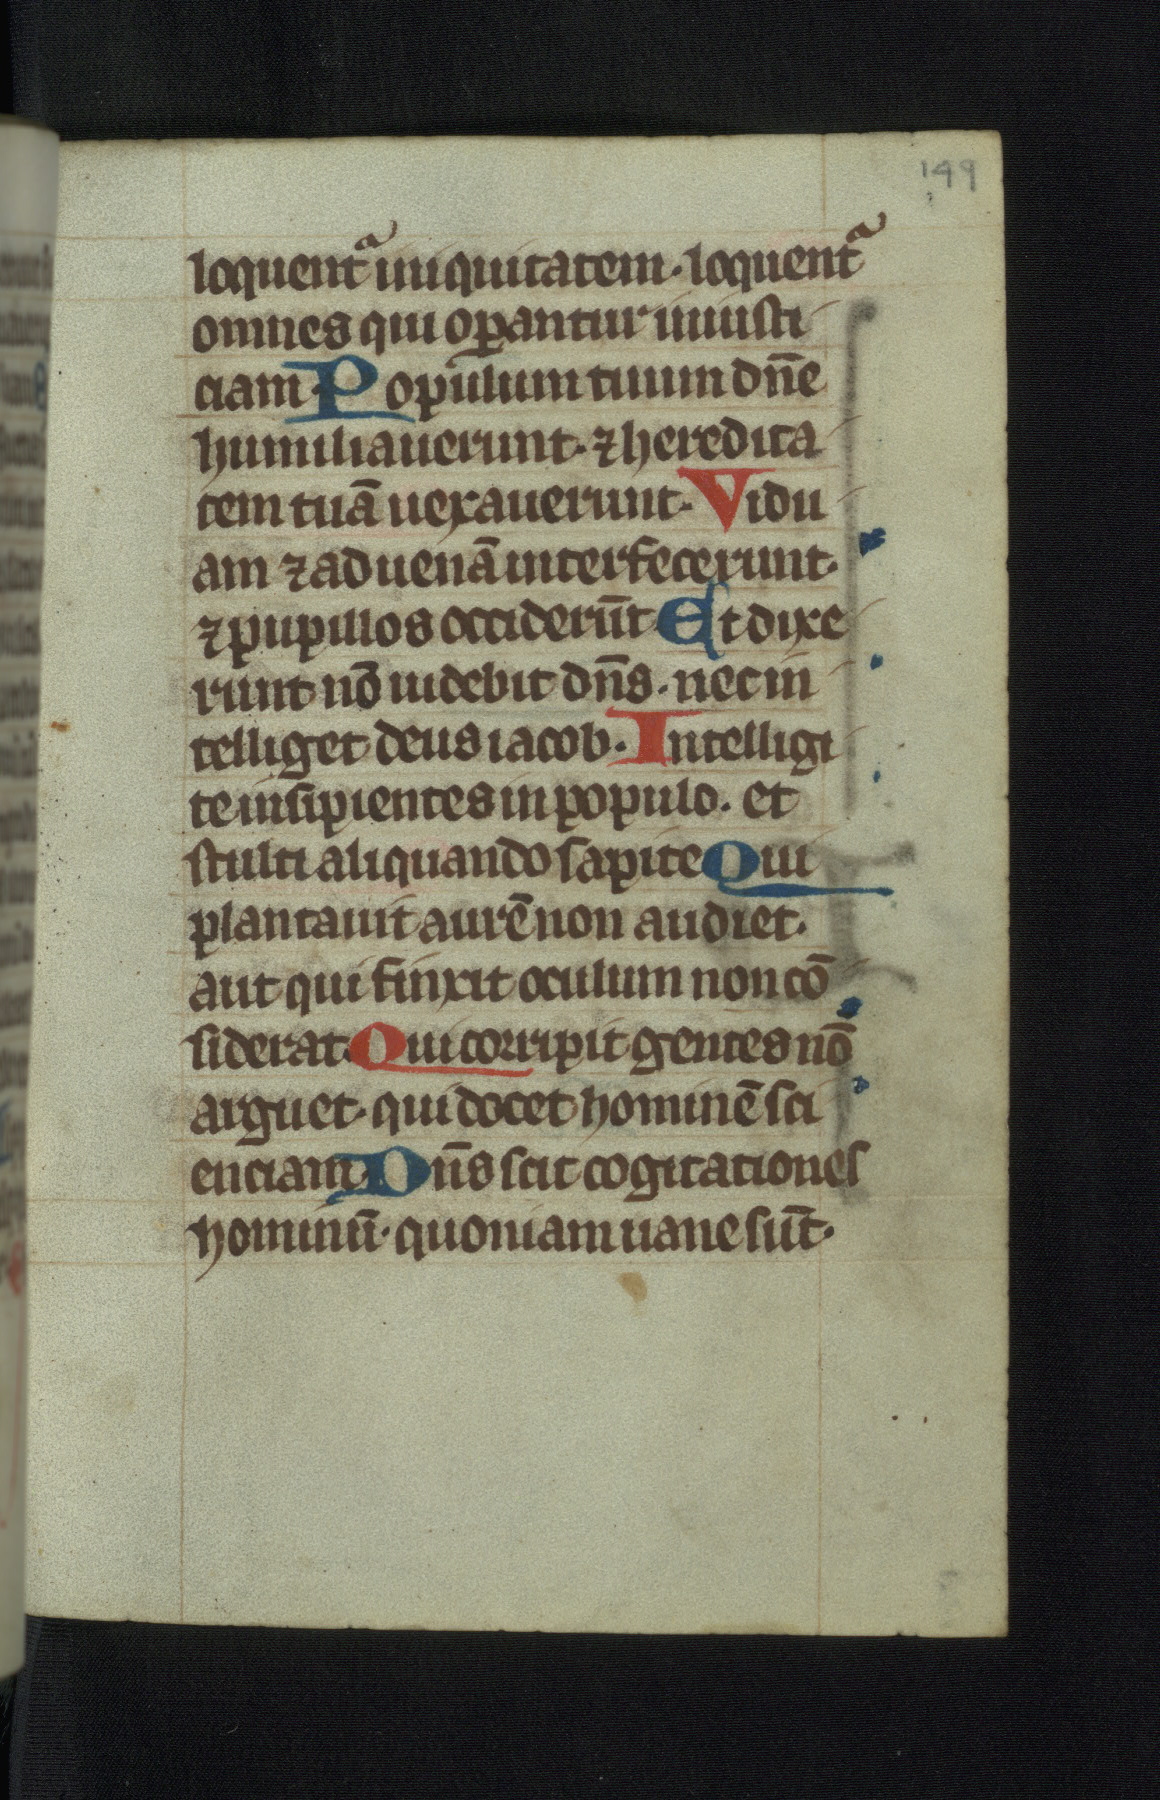 149
loquentᷓ iniquitatem · loquentᷓ
omnes qui oꝑantur iniusti
ciam · Populum tuum dn̄e
humiliauerunt · ⁊ heredita
tem tuā uexauerunt · Vidu
am ⁊ aduenā interfecerunt ·
⁊ pupillos occiderūt Et dixe
runt nō uidebit dn̄s · nec in
telliget deus iacob · Intelligi
te insipientes in populo · et
stulti aliquando sapite Qui
plantauit aurē non audiet ·
aut qui finxit oculum non cō
siderat · Qui corripit gentes nō
arguet · qui docet hominē sci
enciam · Dn̄s scit cogitationes
hominū · quoniam uane sūt ·